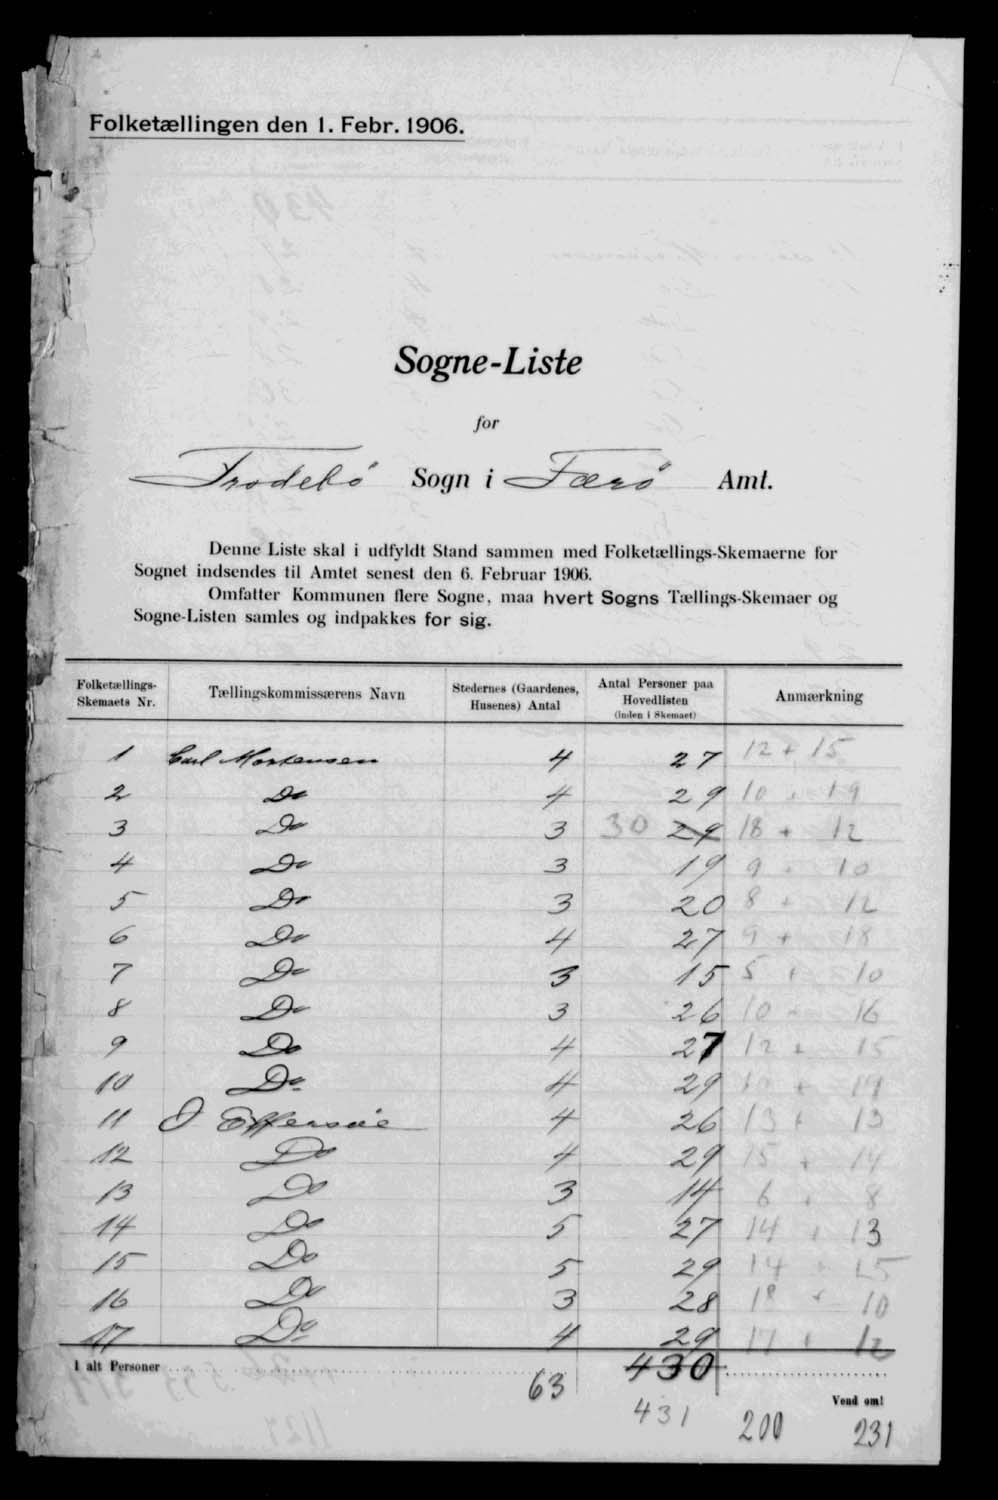 Folketællingen den 1. Febr. 1906.
Sogne-Liste
for
Frodebö Sogn i Færö Amt.
Denne Liste skal i udfyldt Stand sammen med Folketællings-Skemaerne for
Sognet indsendes til Amtet senest den 6. Februar 1906.
Omfatter Kommunen flere Sogne, maa hvert Sogns Tællings-Skemaer og
Sogne-Listen samles og indpakkes for sig.
Folketællings-Skemaets Nr. Tællingskommissærens Navn Stedernes (Gaardenes, Husenes) Antal Antal Personer paa Hovedlisten (inden i Skemaet) Anmærkning
1 Carl Mortensen 4 27 12 + 15
2 Do 4 29 10 + 19
3 Do 3 30 29 18 + 12
4 Do 3 19 9 + 10
5 Do 3 20 8 + 12
6 Do 4 27 9 + 18
7 Do 3 15 5 + 10
8 Do 3 26 10 + 16
9 Do 4 27 12 + 15
10 Do 4 29 10 + 19
11 O Effersöe 4 26 13 + 13
12 Do 4 29 15 + 14
13 Do 3 14 6 + 8
14 Do 5 27 14 + 13
15 Do 5 29 14 + 15
16 Do 3 28 18 + 10
17 Do 4 29 17 + 12
I alt Personer 63 430
Vend om!
431 200 231